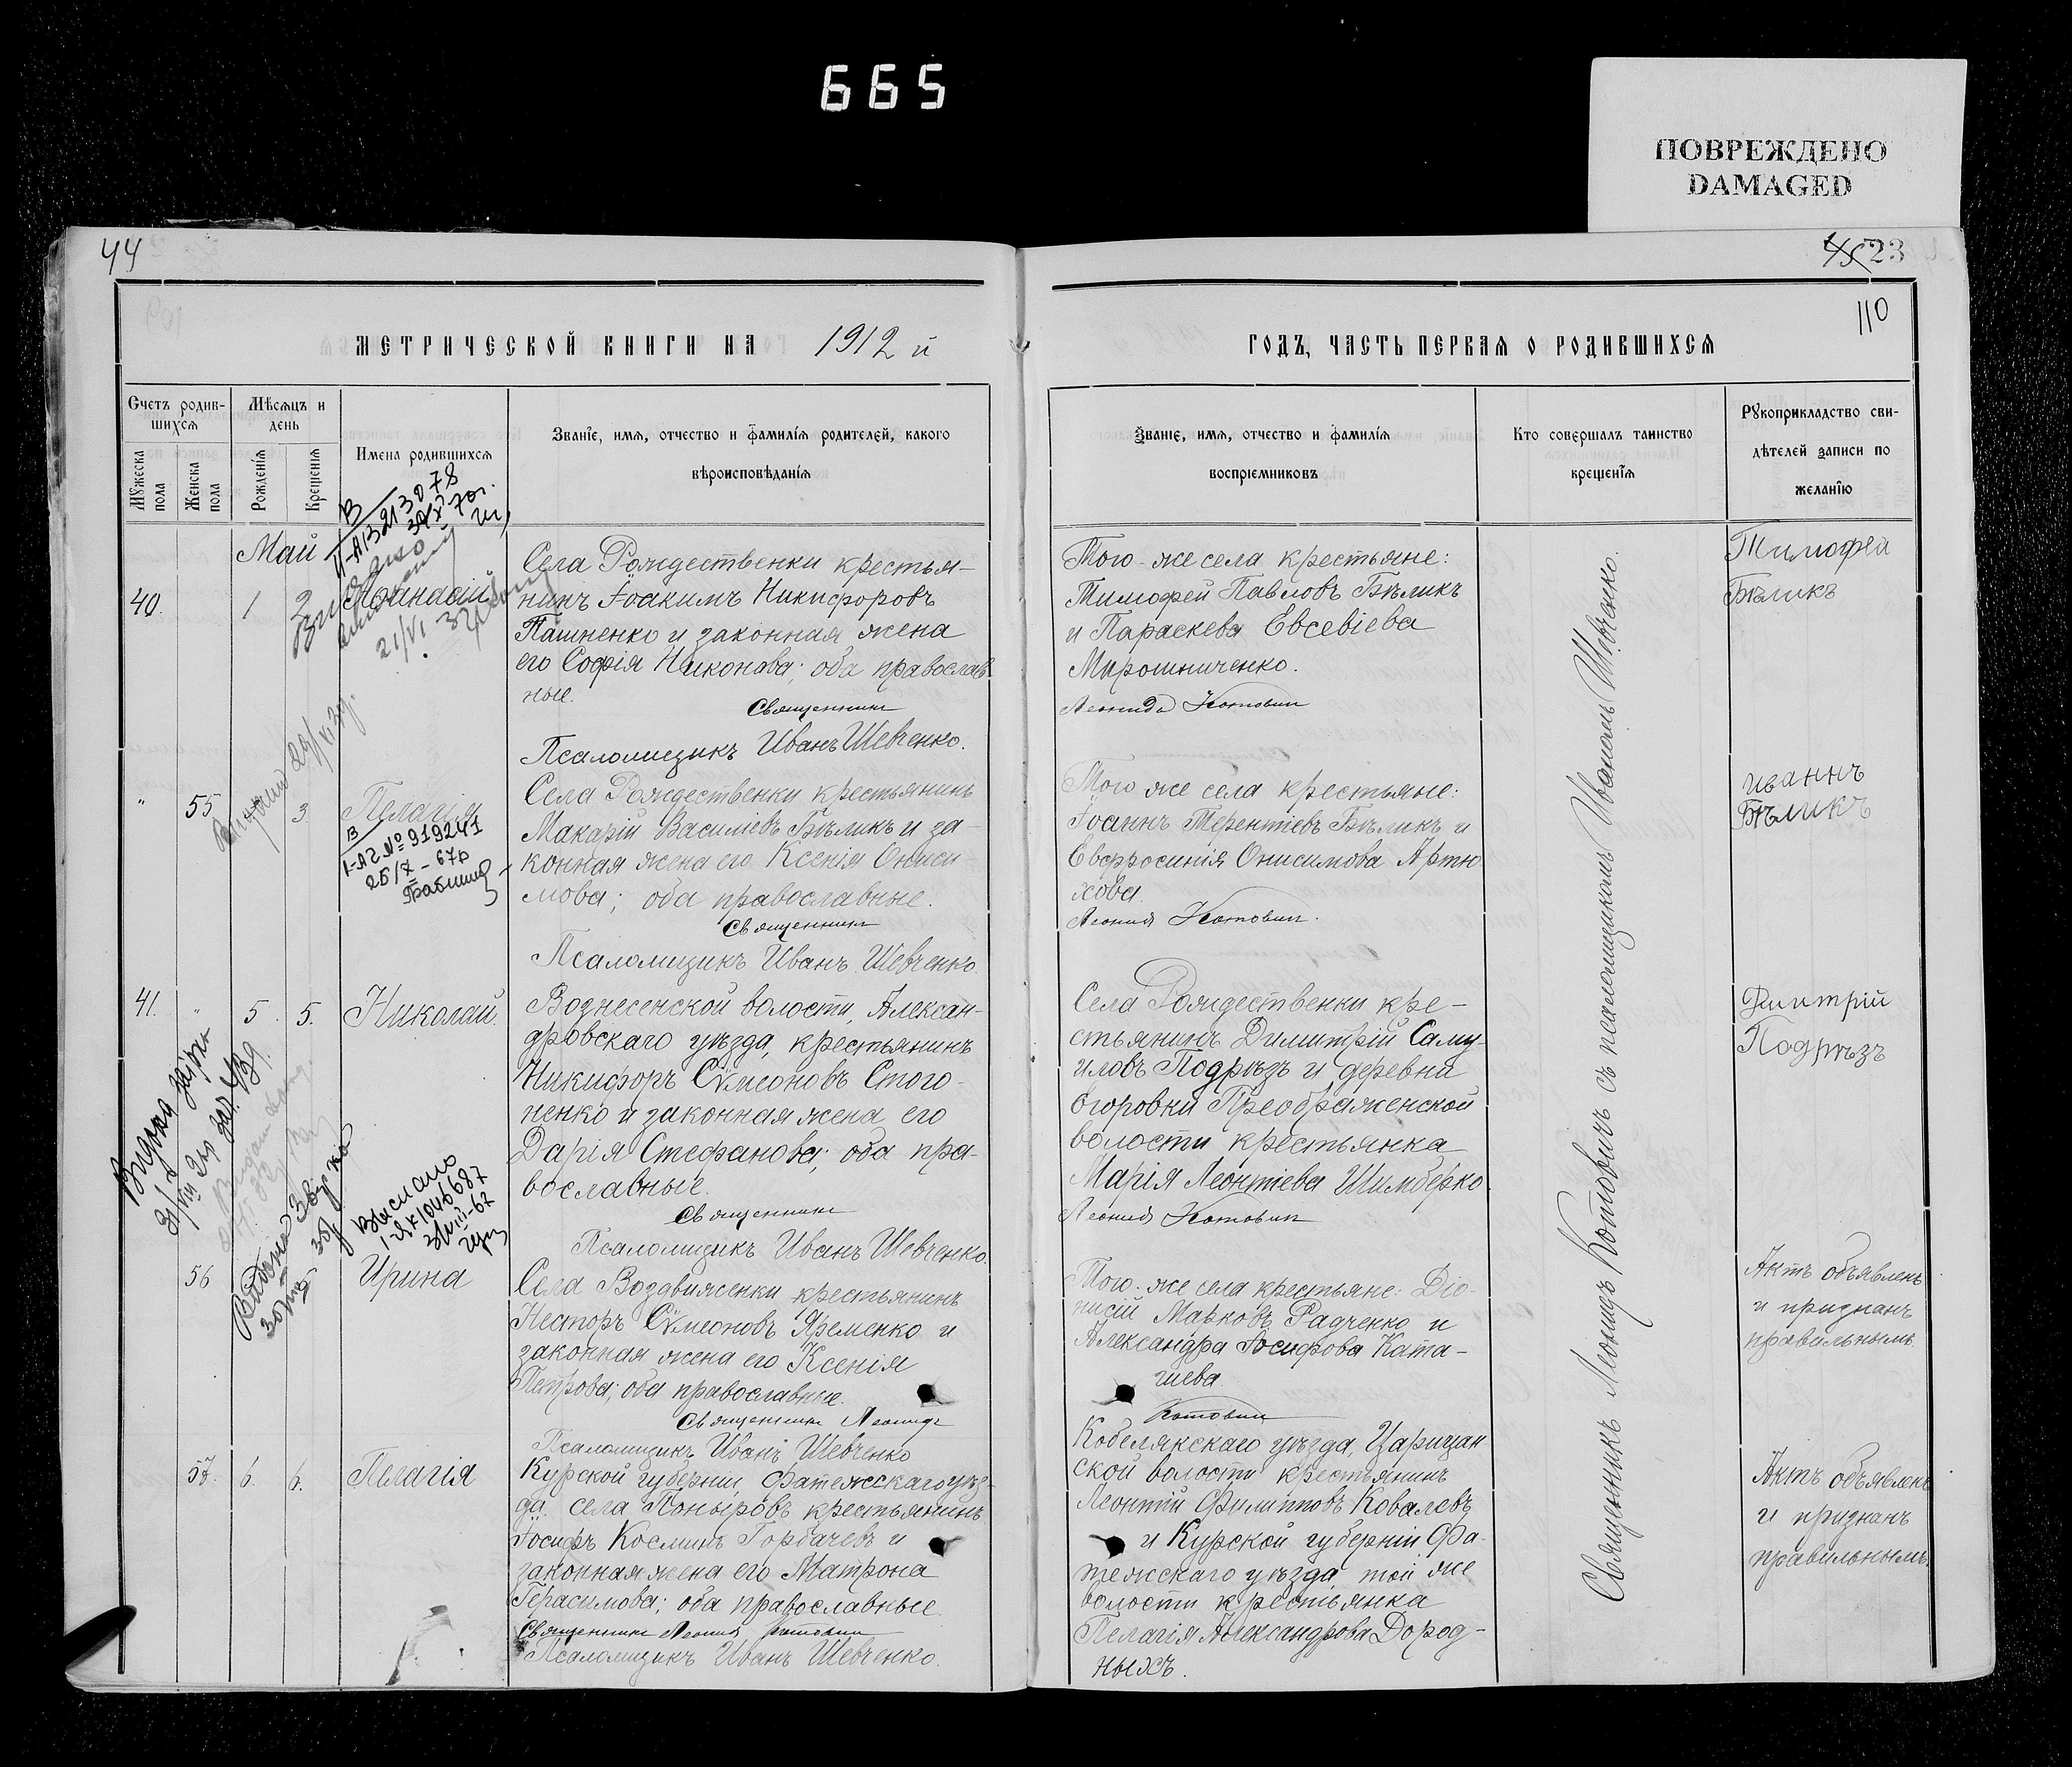 665
ПОВРЕЖДЕНО
DAMAGED
44
45 23
110
МЕТРИЧЕСКОЙ КНИГИ НА 1912 й
ГОДЪ, ЧАСТЬ ПЕРВАЯ О РОДИВШИХСЯ
Счетъ родив-
шихся
Мужеска пола
Женска пола
Мѣсяцъ и
день
Рожденія
Крещенія
Имена родившихся
Званіе, имя, отчество и фамилія родителей, какого
вѣроисповѣданія
Званіе, имя, отчество и фамилія
воспріемниковъ
Кто совершалъ таинство
крещенія
Рукоприкладство сви-
дѣтелей записи по
желанію
Май
40. 1 2 Афанасій
21/VI
Села Рождественки крестья-
нинъ Іоакимъ Никифоровъ
Пашненко и законная жена
его Софія Никонова; оба православ
ные.
Священникъ
Псаломщикъ Иванъ Шевченко.
Того-же села крестьяне:
Тимофей Павловъ Бѣликъ
и Параскева Евсевіева
Мирошниченко.
Леонидъ Котовичъ
Тимофей
Бѣликъ
" 55 3. Пелагія
В
I-АГ № 919241
25/X - 67г
Села Рождественки крестьянинъ
Макарій Василіевъ Бѣликъ и за-
конная жена его Ксенія Ониси
мова; оба православные.
Священникъ
Псаломщикъ Иванъ Шевченко.
Того же села крестьяне:
Іоаннъ Терентіевъ Бѣликъ и
Евфросинія Онисимова Артю
хова.
Леонидъ Котовичъ.
иваннъ
Бѣликъ
41. " 5. 5. Николай.
Вознесенской волости, Алексан-
дровскаго уѣзда, крестьянинъ
Никифоръ Сѵмеоновъ Стого-
ненко и законная жена его
Дарія Стефанова; оба пра-
вославные.
Священникъ
Псаломщикъ Иванъ Шевченко.
Села Рождественки кре-
стьянинъ Димитрій Саму-
иловъ Подрѣзъ и деревни
Егоровки Преображенской
волости крестьянка
Марія Леонтіева Шимберко.
Леонидъ Котовичъ
Димитрій
Подрѣзъ
Выслано
56 Ирина
Села Воздвиженки крестьянинъ
Несторъ Сѵмеоновъ Яременко и
законная жена его Ксенія
Петрова; оба православные.
Священникъ Леонидъ
Псаломщикъ Иванъ Шевченко
Того-же села крестьяне: Діо-
нисій Марковъ Радченко и
Александра Іосифова Ката-
гиева.
Котовичъ
Актъ объявленъ
и признанъ
правильнымъ.
57. 6. 6. Пелагія
Курской губерніи, Фатежскаго уѣз-
да села Поныровъ крестьянинъ
Іосифъ Косминъ Горбачевъ и
законная жена его Матрона
Герасимова; оба православные.
Священникъ Леонидъ Котовичъ
Псаломщикъ Иванъ Шевченко.
Кобелякскаго уѣзда, Царичан-
ской волости крестьянинъ
Леонтій Филипповъ Ковалевъ
и Курской губерніи Фа-
тежскаго уѣзда той же
волости крестьянка
Пелагія Александрова Дород-
ныхъ.
Актъ объявленъ
и признанъ
правильнымъ.
Священникъ Леонидъ Котовичъ съ псаломщикомъ Иваномъ Шевченко.